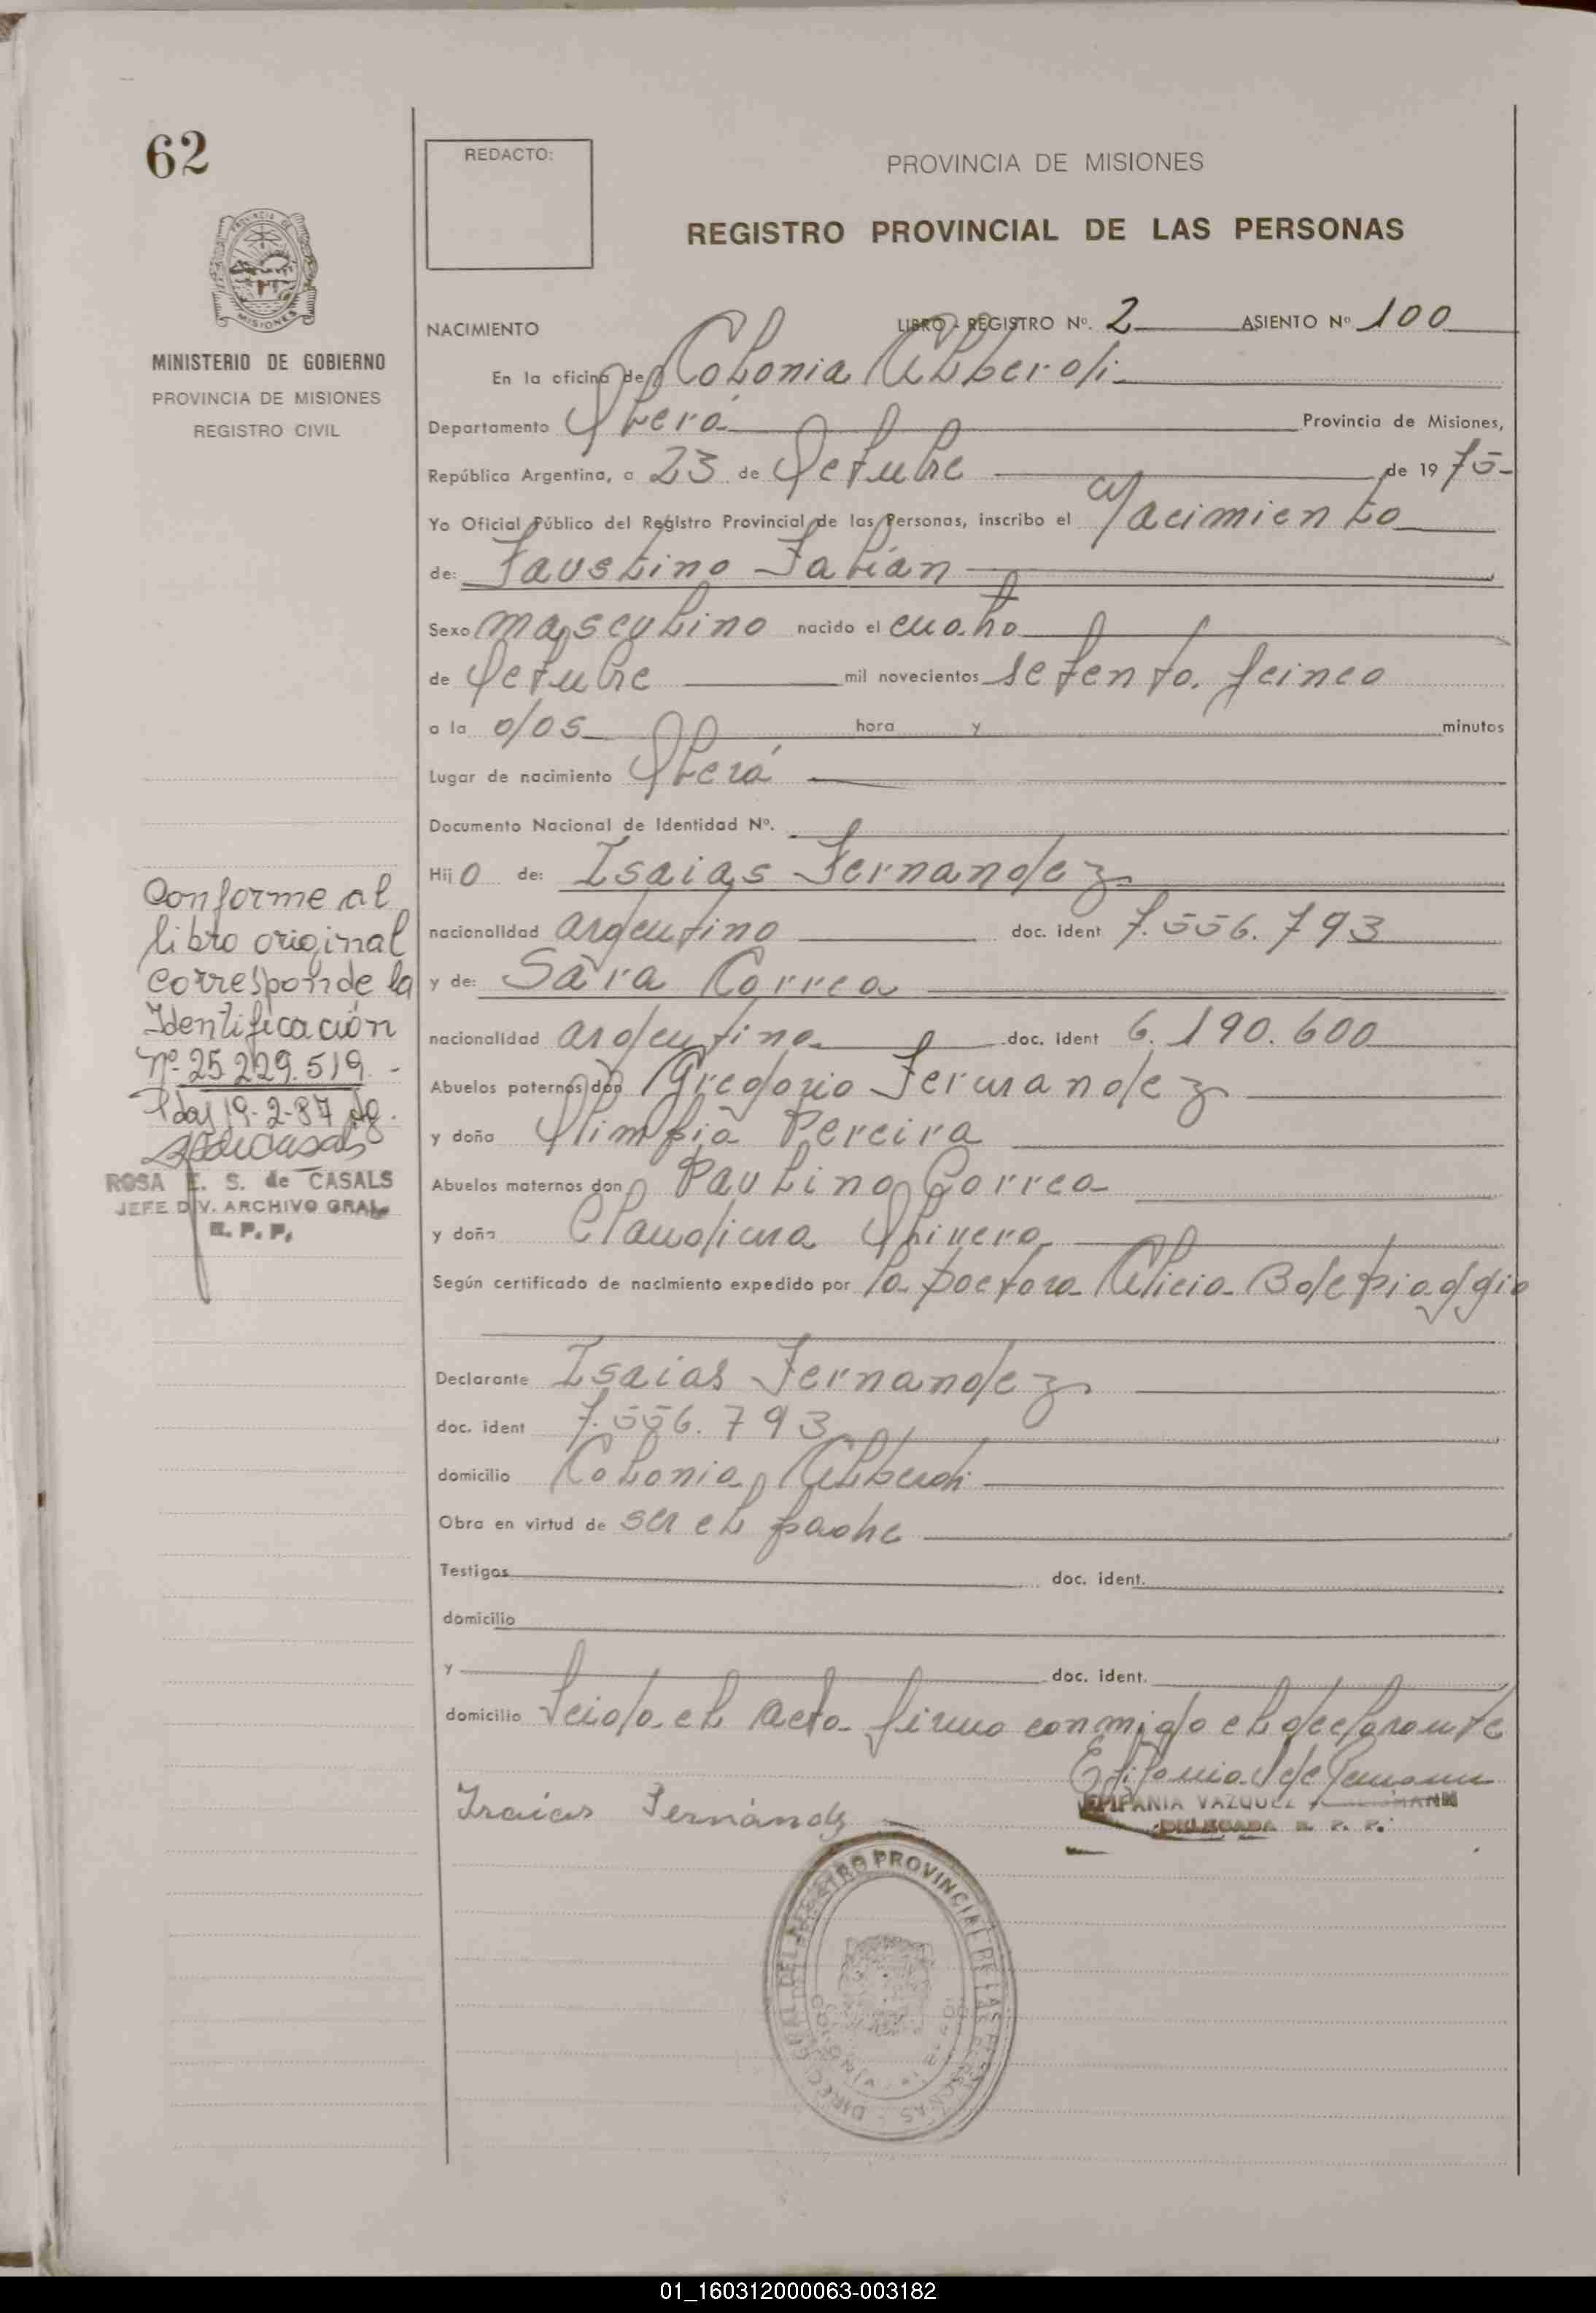 62
REDACTO:
PROVINCIA DE MISIONES
REGISTRO PROVINCIAL DE LAS PERSONAS
PROVINCIA DE
MISIONES
MINISTERIO DE GOBIERNO
PROVINCIA DE MISIONES
REGISTRO CIVIL
NACIMIENTO LIBRO - REGISTRO Nº. 2 ASIENTO Nº 100
En la oficina de Colonia Alberdi
Departamento Oberá Provincia de Misiones,
República Argentina, a 23 de Octubre de 1975-
Yo Oficial Público del Registro Provincial de las Personas, inscribo el Nacimiento
de: Faustino Fabián
Sexo masculino nacido el cuatro
de Octubre mil novecientos setenta y cinco
a la dos hora y minutos
Lugar de nacimiento Oberá
Documento Nacional de Identidad Nº.
Hijo de: Isaias Fernandez
nacionalidad argentino doc. ident 7.556.793
y de: Sara Correa
nacionalidad argentina doc. ident 6.190.600
Abuelos paternos don Gregorio Fernandez
y doña Olimpia Pereira
Abuelos maternos don Paulino Correa
y doña Claudiana
Según certificado de nacimiento expedido por la Doctora Alicia B de Piaggio
Declarante Isaias Fernandez
doc. ident 7.556.793
domicilio Colonia Alberdi
Obra en virtud de ser el padre
Testigos doc. ident.
domicilio
y doc. ident.
domicilio Leida el acta firma conmigo el declarante
Isaias Fernández
EPIFANIA VAZQUEZ
DELEGADA R. P. P.
Conforme al
libro original
corresponde la
Identificación
Nº 25.229.519 -
Pdas 19-2-87
ROSA E. S. de CASALS
JEFE DIV. ARCHIVO GRAL
R. P. P.
DIRECC. GRAL DEL REGISTRO PROVINCIAL DE LAS PERSONAS
01_160312000063-003182